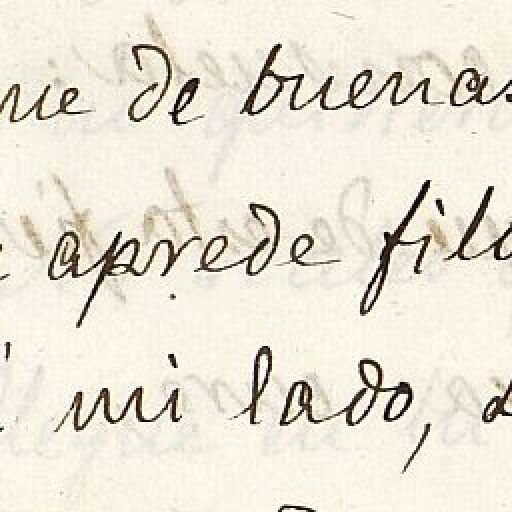 ue de buenas
aprede filo
mi lado,